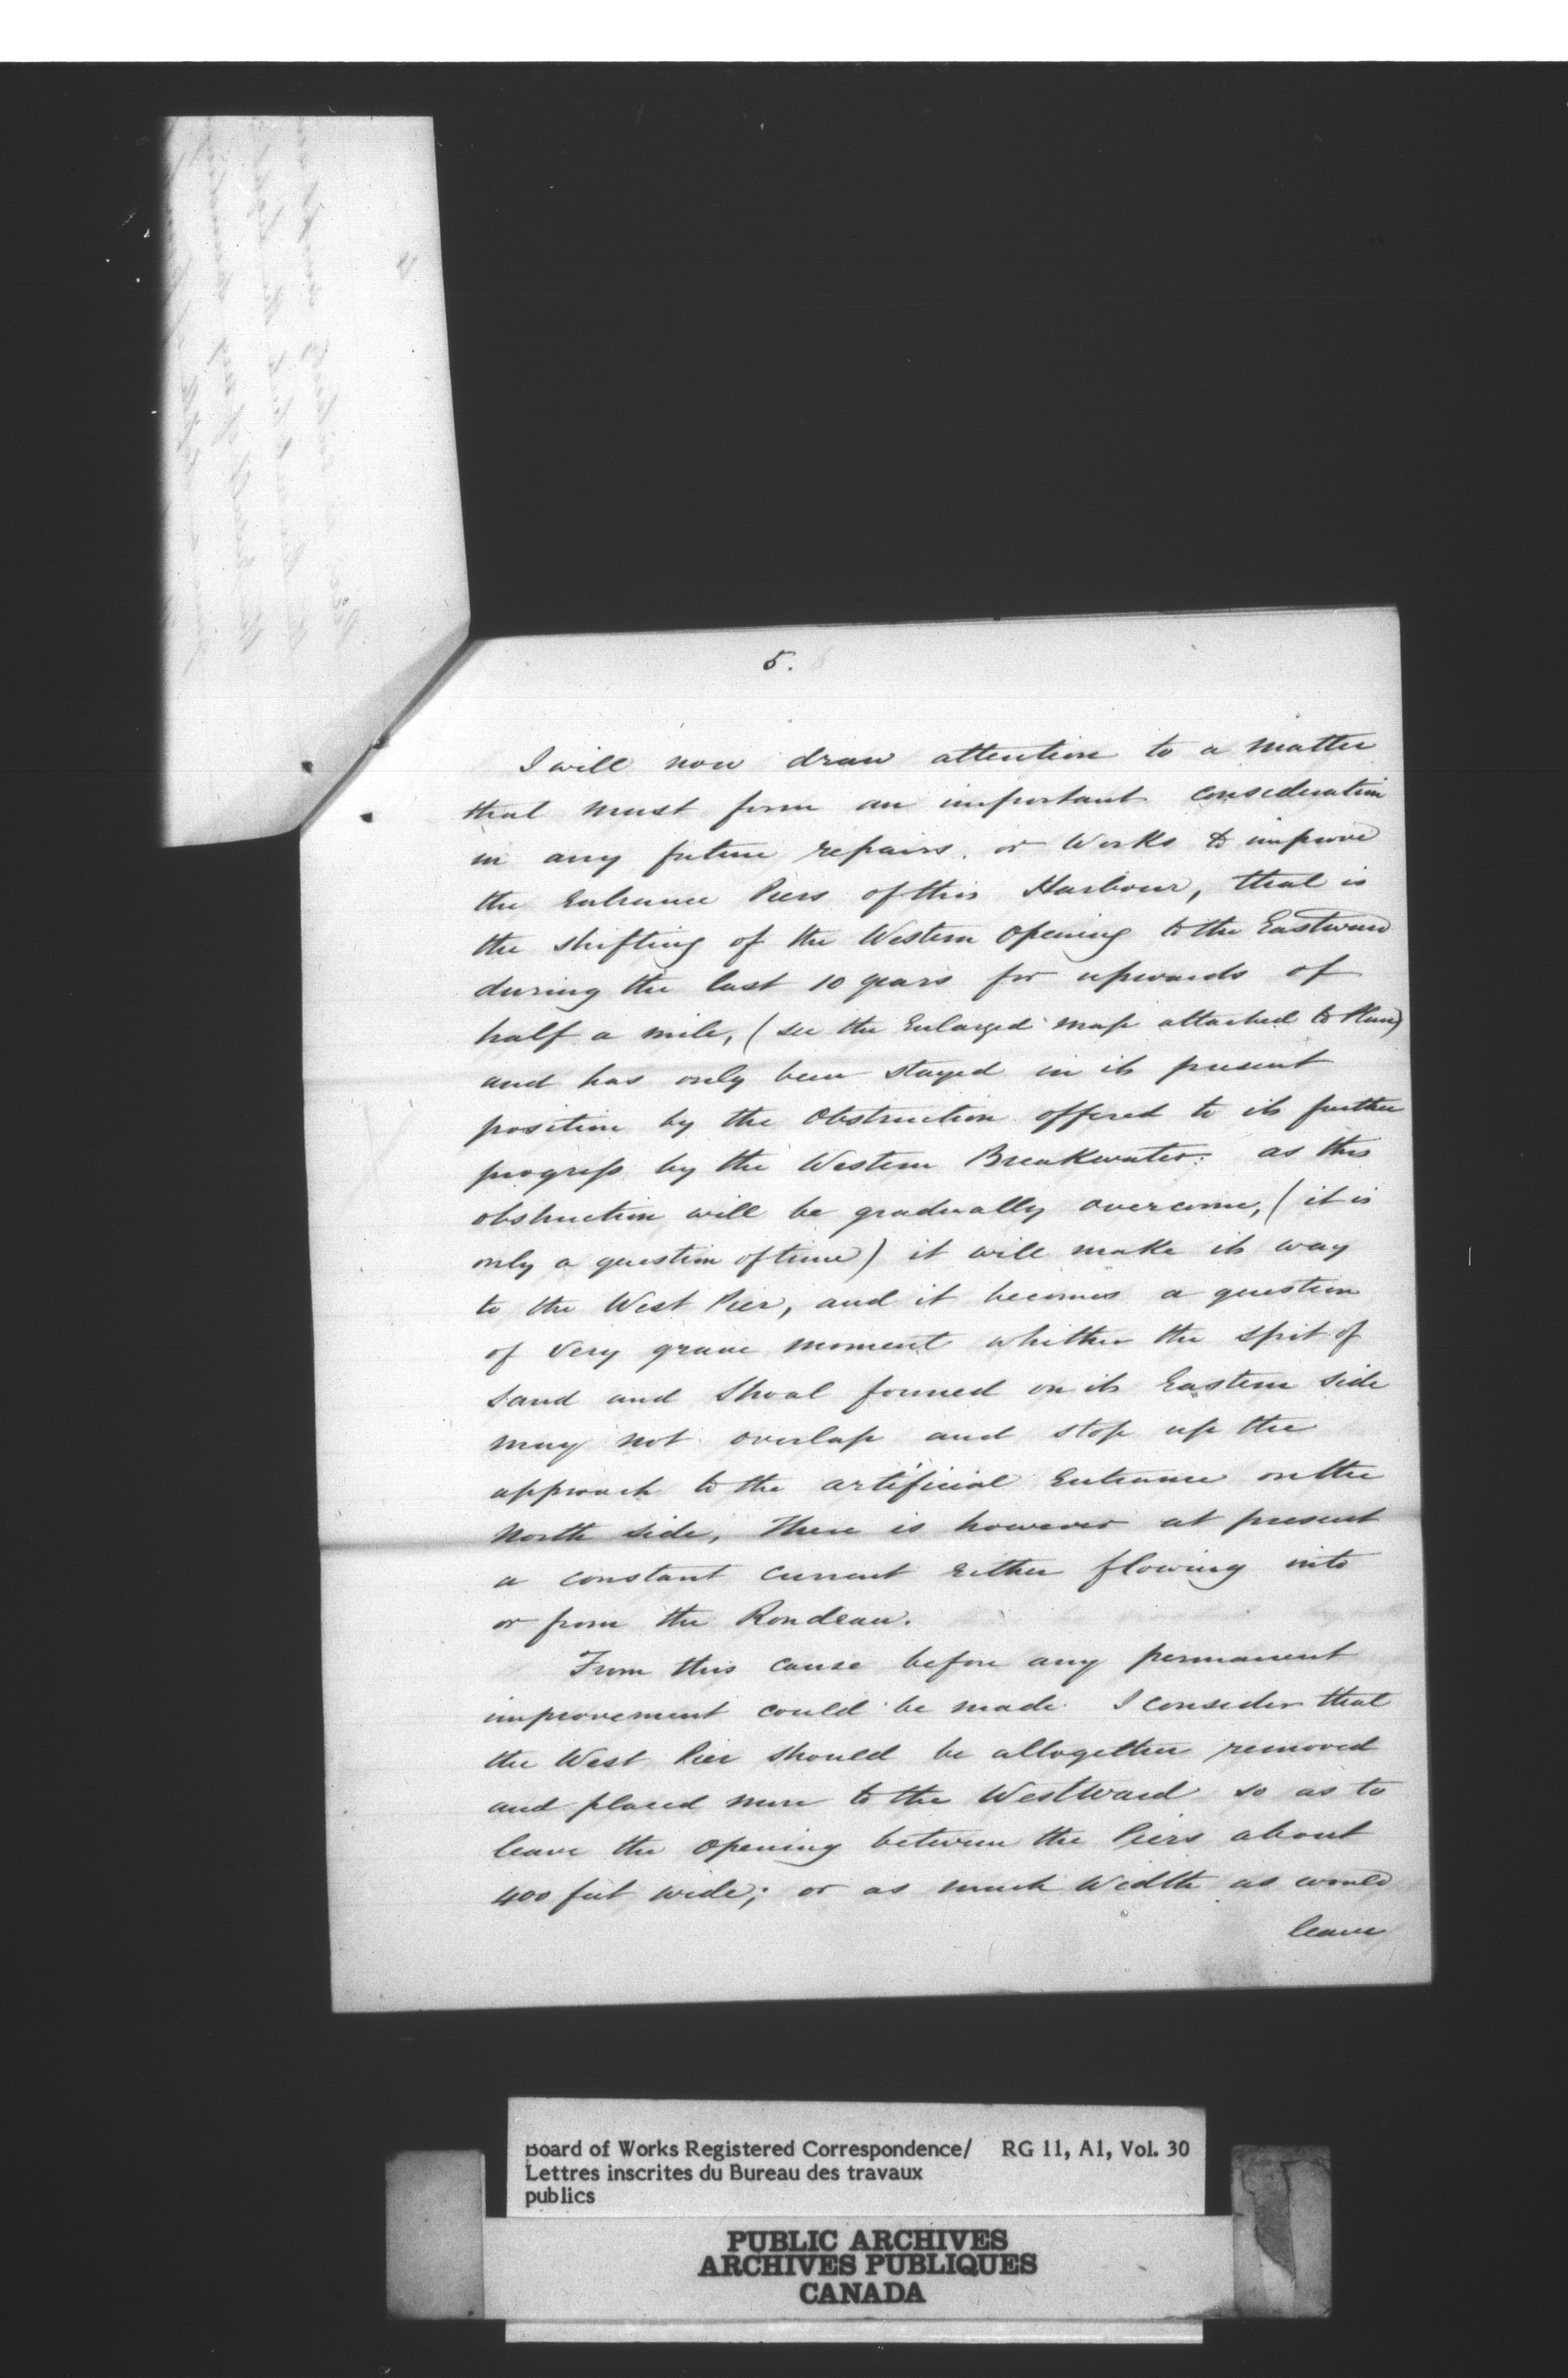 5.
I will now draw attention to a matter
that must form an important consideration
in any future repairs. or Works to improve
the Entrance Piers of this Harbour, that is
the shifting of the Western Opening to the Eastward
during the last 10 years for upwards of
half a mile, (see the Enlarged map attached to Plan)
and has only been stayed in its present
position by the Obstruction offered to its further
progress by the Western Breakwater: as this
obstruction will be gradually overcome, (it is
only a question of time) it will make its way
to the West Pier, and it becomes a question
of very grave moment whether the spit of
Sand and Shoal formed on its Eastern side
may not overlap and stop up the
approach to the artificial Entrance on the
North side, There is however at present
a constant current Either flowing into
or from the Rondeau.
From this cause before any permanent
improvement could be made I consider that
the West Pier should be altogether removed
and placed more to the Westward so as to
leave the Opening between the Piers about
400 feet wide; or as much Width as would
leave
Board of Works Registered Correspondence/ RG 11, A1, Vol. 30
Lettres inscrites du Bureau des travaux
publics
PUBLIC ARCHIVES
ARCHIVES PUBLIQUES
CANADA